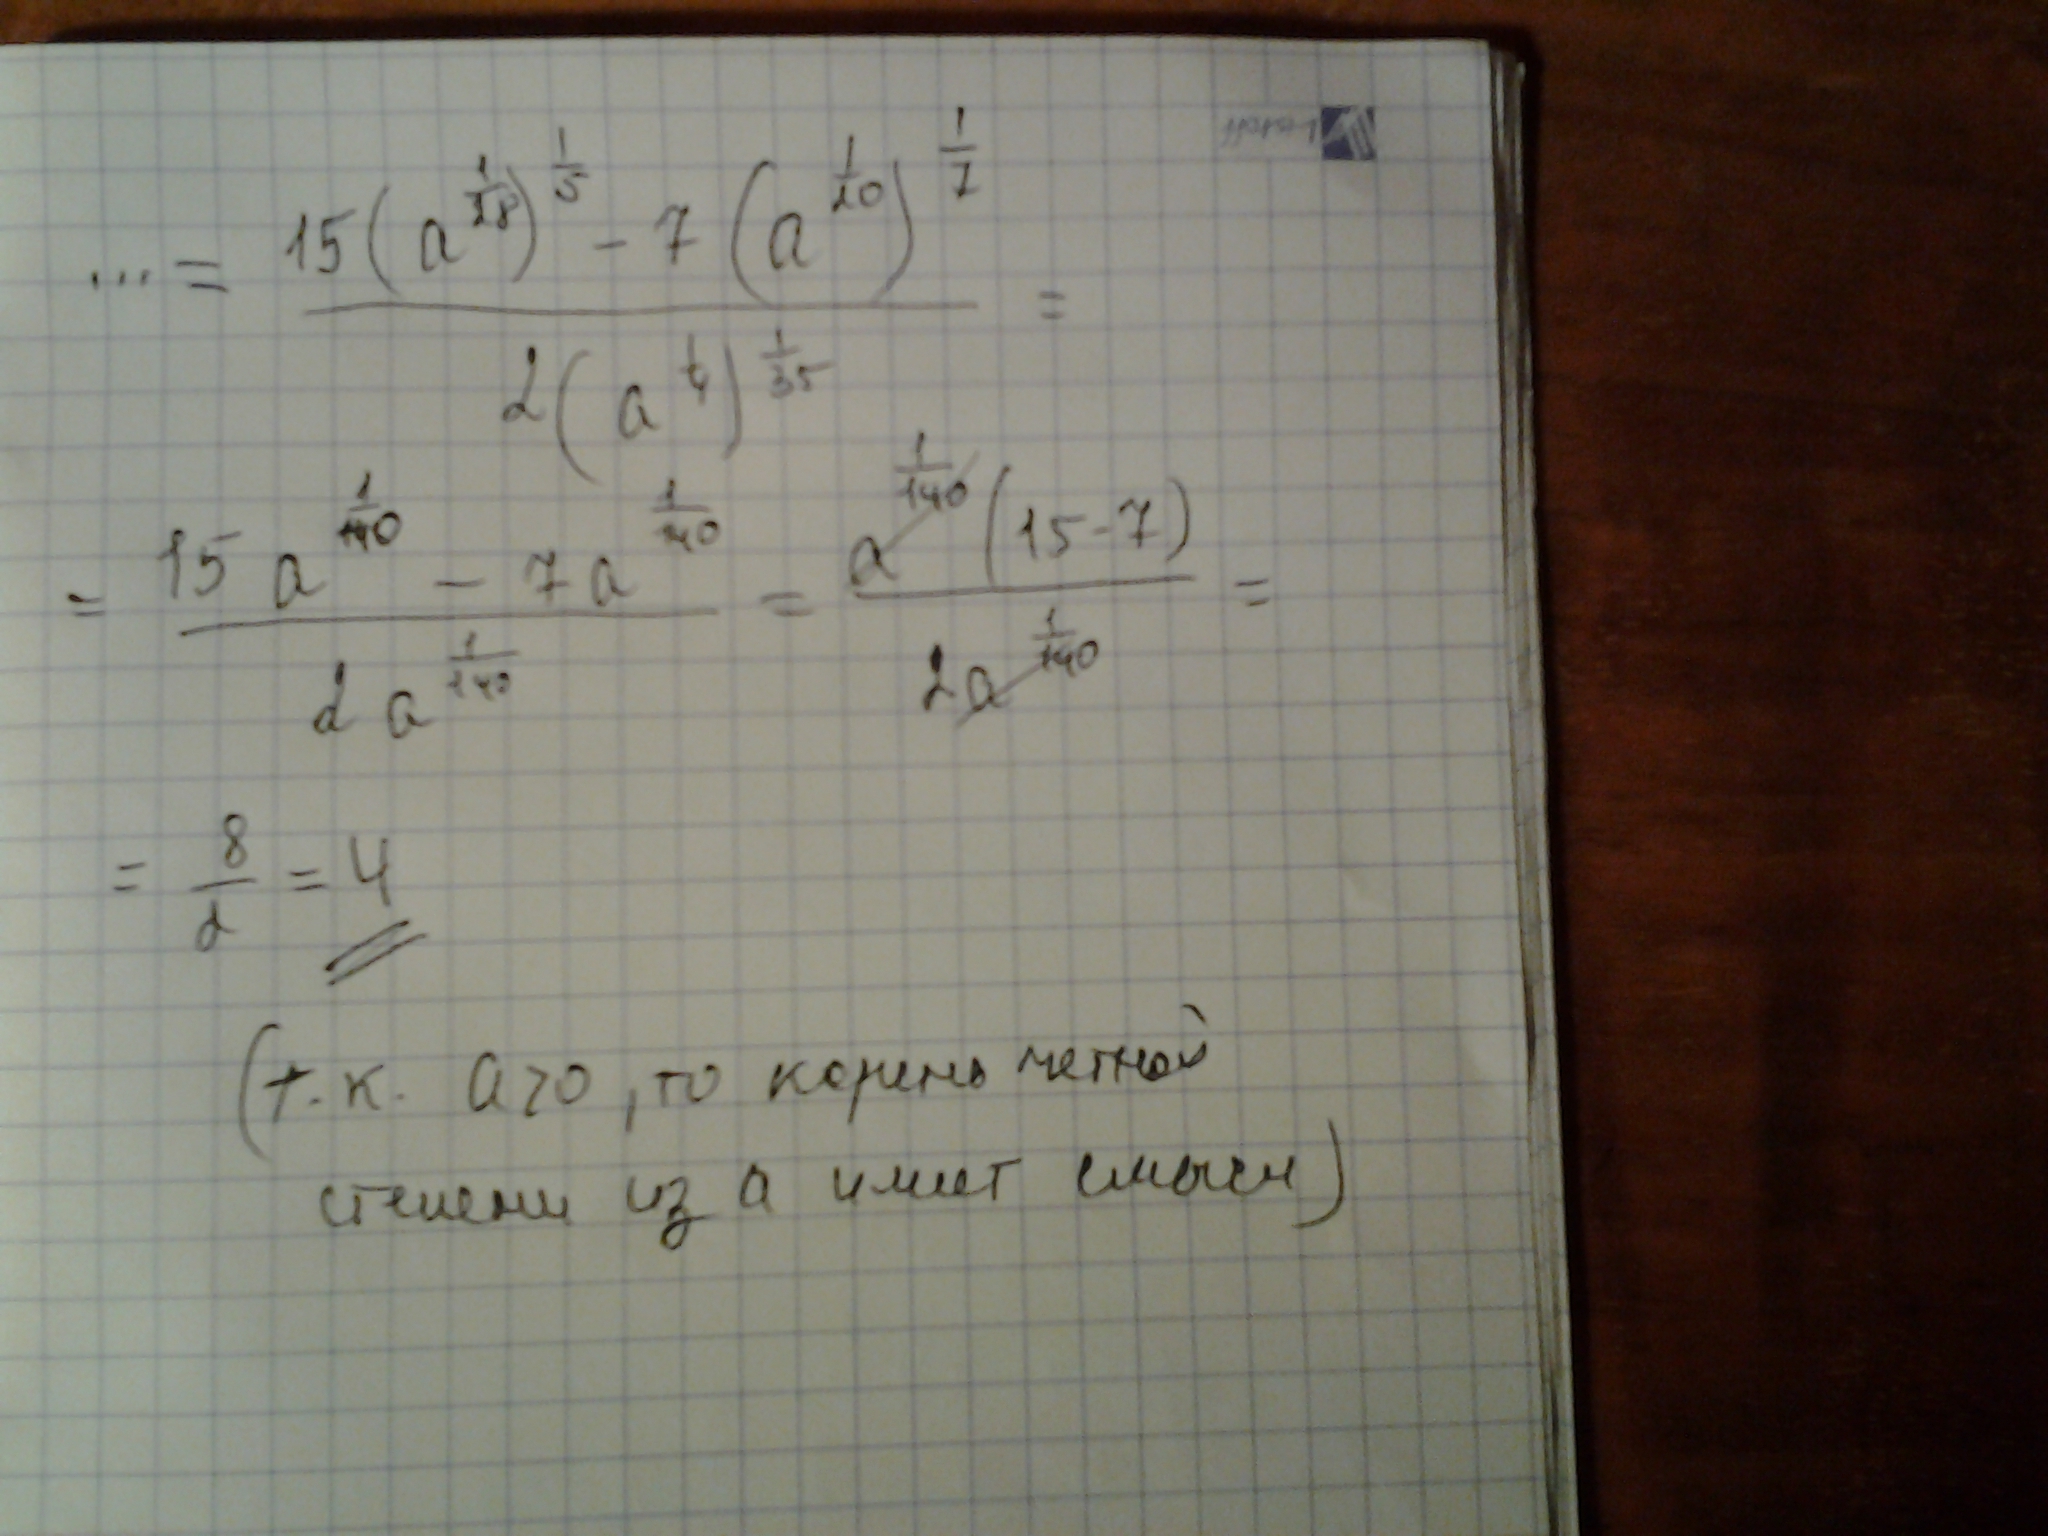 ... = \frac{15(a^{\frac{1}{28}})^{\frac{1}{5}} - 7(a^{\frac{1}{20}})^{\frac{1}{7}}}{2(a^{\frac{1}{4}})^{\frac{1}{35}}} =
= \frac{15a^{\frac{1}{140}} - 7a^{\frac{1}{140}}}{2a^{\frac{1}{140}}} = \frac{a^{\frac{1}{140}}(15-7)}{2a^{\frac{1}{140}}} =
= \frac{8}{2} = 4
(т.к. a>0, то корень четной
степени из a имеет смысл)